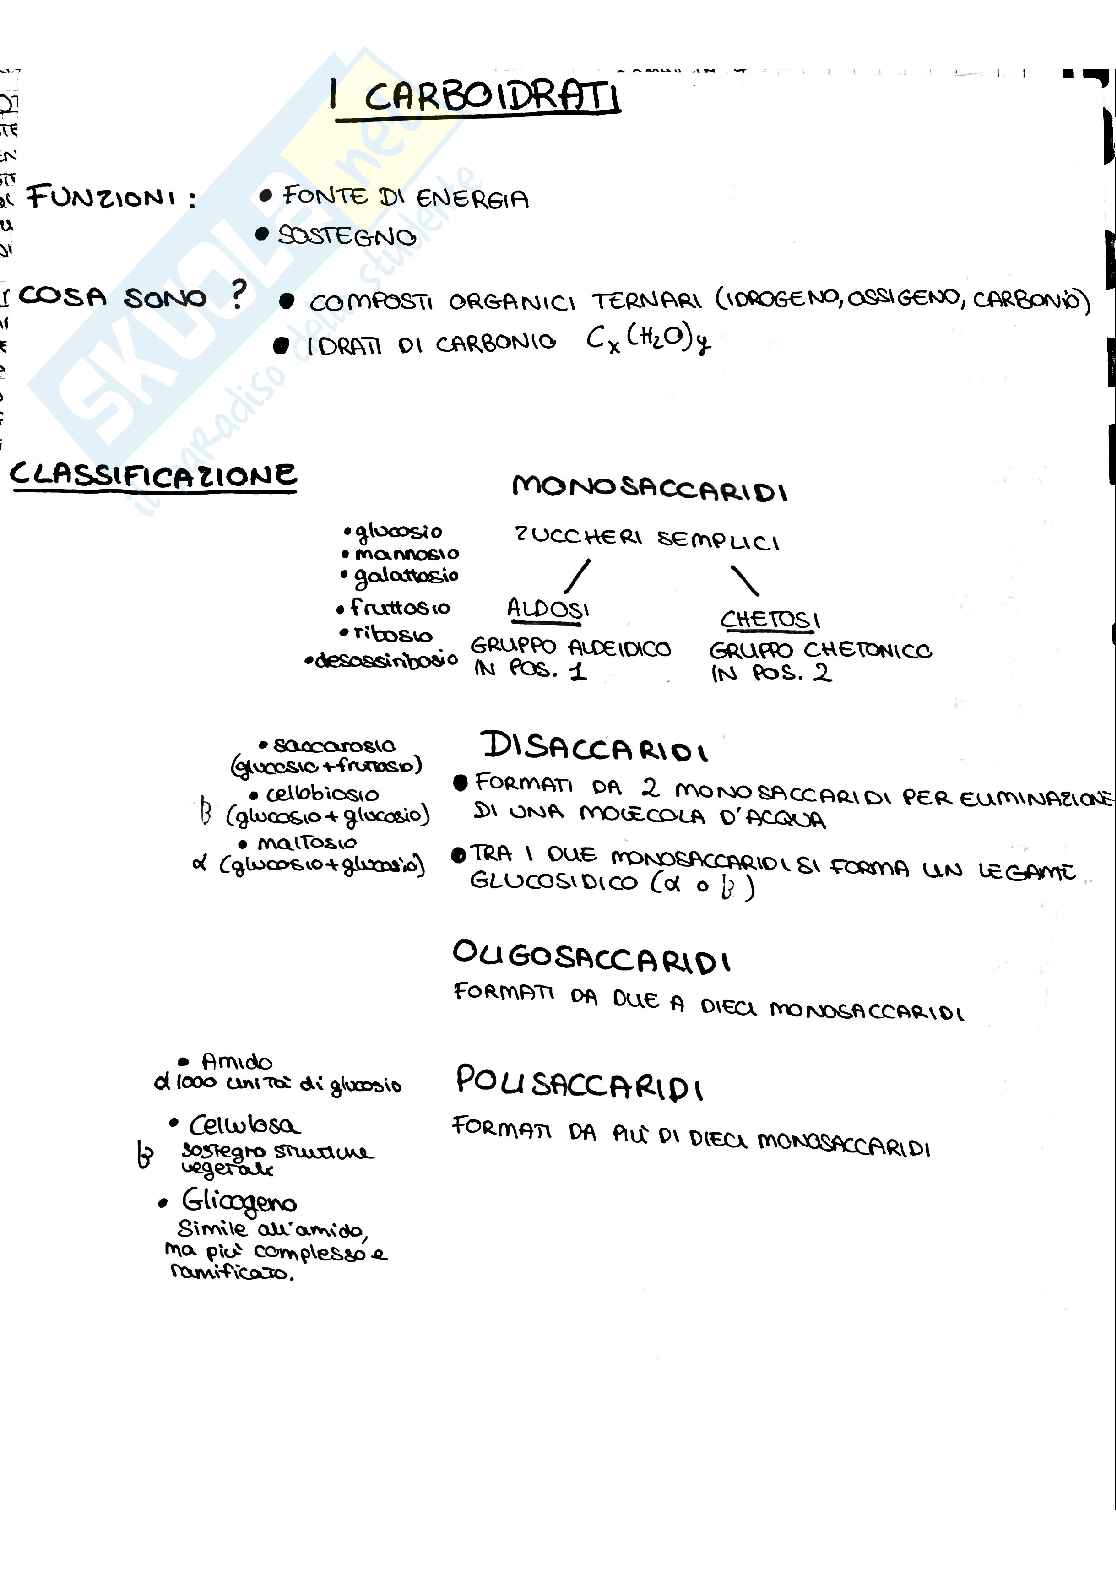 I CARBOIDRATI
FUNZIONI: • FONTE DI ENERGIA
• SOSTEGNO
COSA SONO? • COMPOSTI ORGANICI TERNARI (IDROGENO, OSSIGENO, CARBONIO)
• IDRATI DI CARBONIO Cx(H2O)y
CLASSIFICAZIONE
MONOSACCARIDI
ZUCCHERI SEMPLICI
• glucosio
• mannosio
• galattosio
• fruttosio
• ribosio
• desossiribosio
ALDOSI
GRUPPO ALDEIDICO
IN POS. 1
CHETOSI
GRUPPO CHETONICO
IN POS. 2
DISACCARIDI
• saccarosio
(glucosio+fruttosio)
• cellobiosio
β (glucosio+glucosio)
• maltosio
α (glucosio+glucosio)
• FORMATI DA 2 MONOSACCARIDI PER ELIMINAZIONE
DI UNA MOLECOLA D'ACQUA
• TRA I DUE MONOSACCARIDI SI FORMA UN LEGAME
GLUCOSIDICO (α o β)
OLIGOSACCARIDI
FORMATI DA DUE A DIECI MONOSACCARIDI
POLISACCARIDI
FORMATI DA PIÙ DI DIECI MONOSACCARIDI
• Amido
α 1000 unità di glucosio
• Cellulosa
β sostegno strutture
vegetale
• Glicogeno
Simile all'amido,
ma più complesso e
ramificato.
SKUOLA.net
il paradiso dello studente